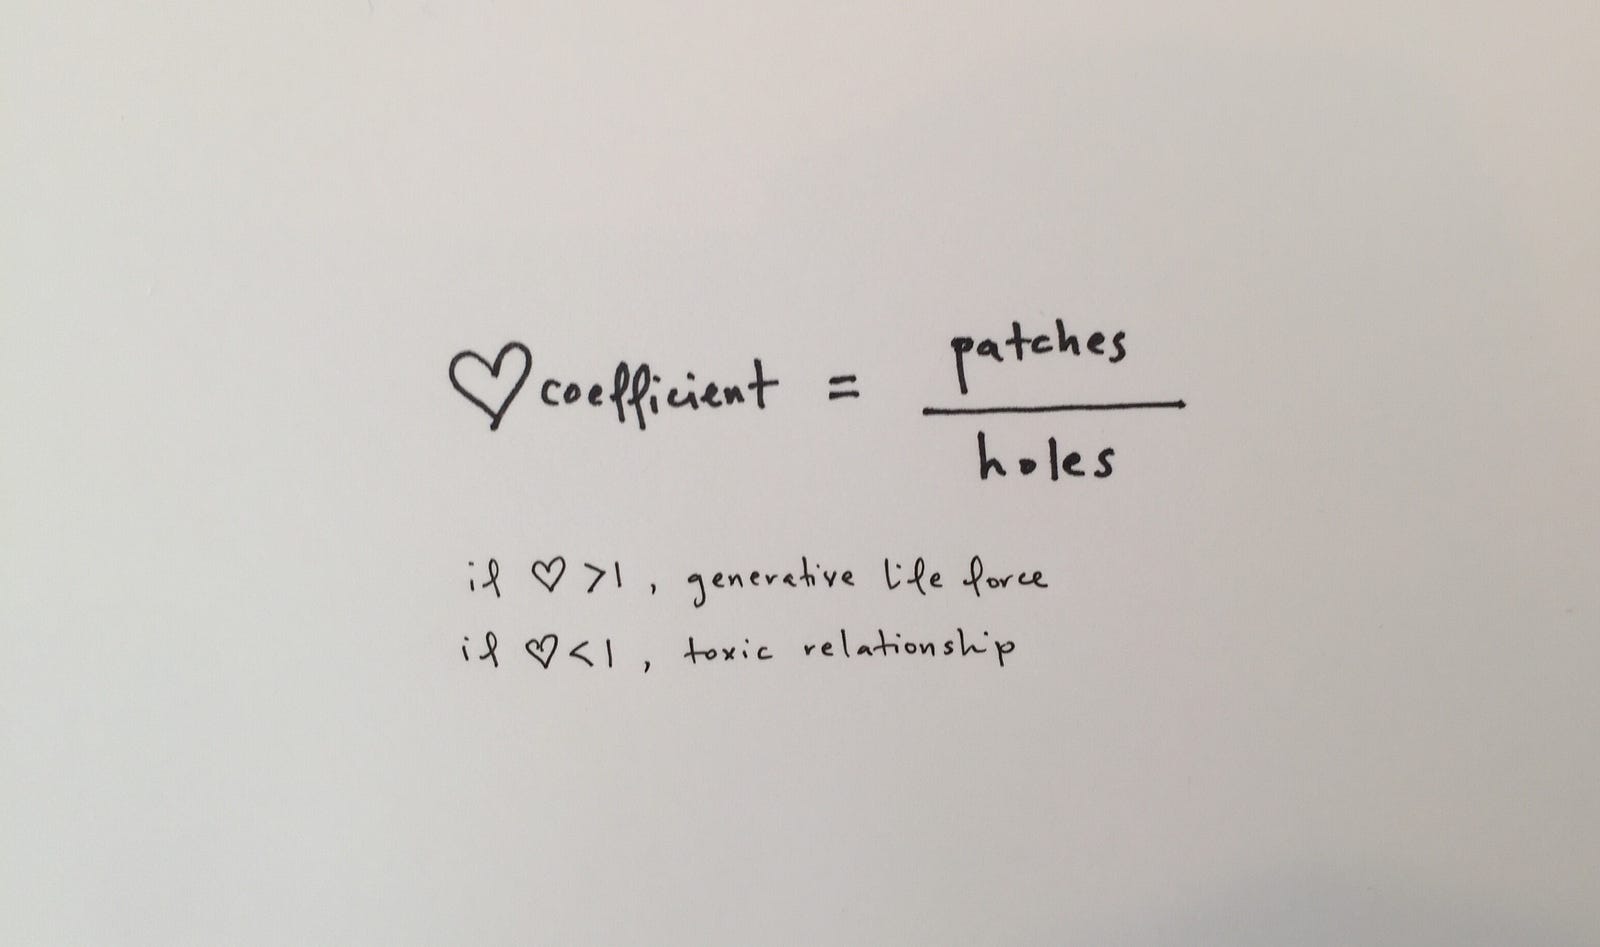 ♡ coefficient = patches / holes
if ♡ >1, generative life force
if ♡ <1, toxic relationship